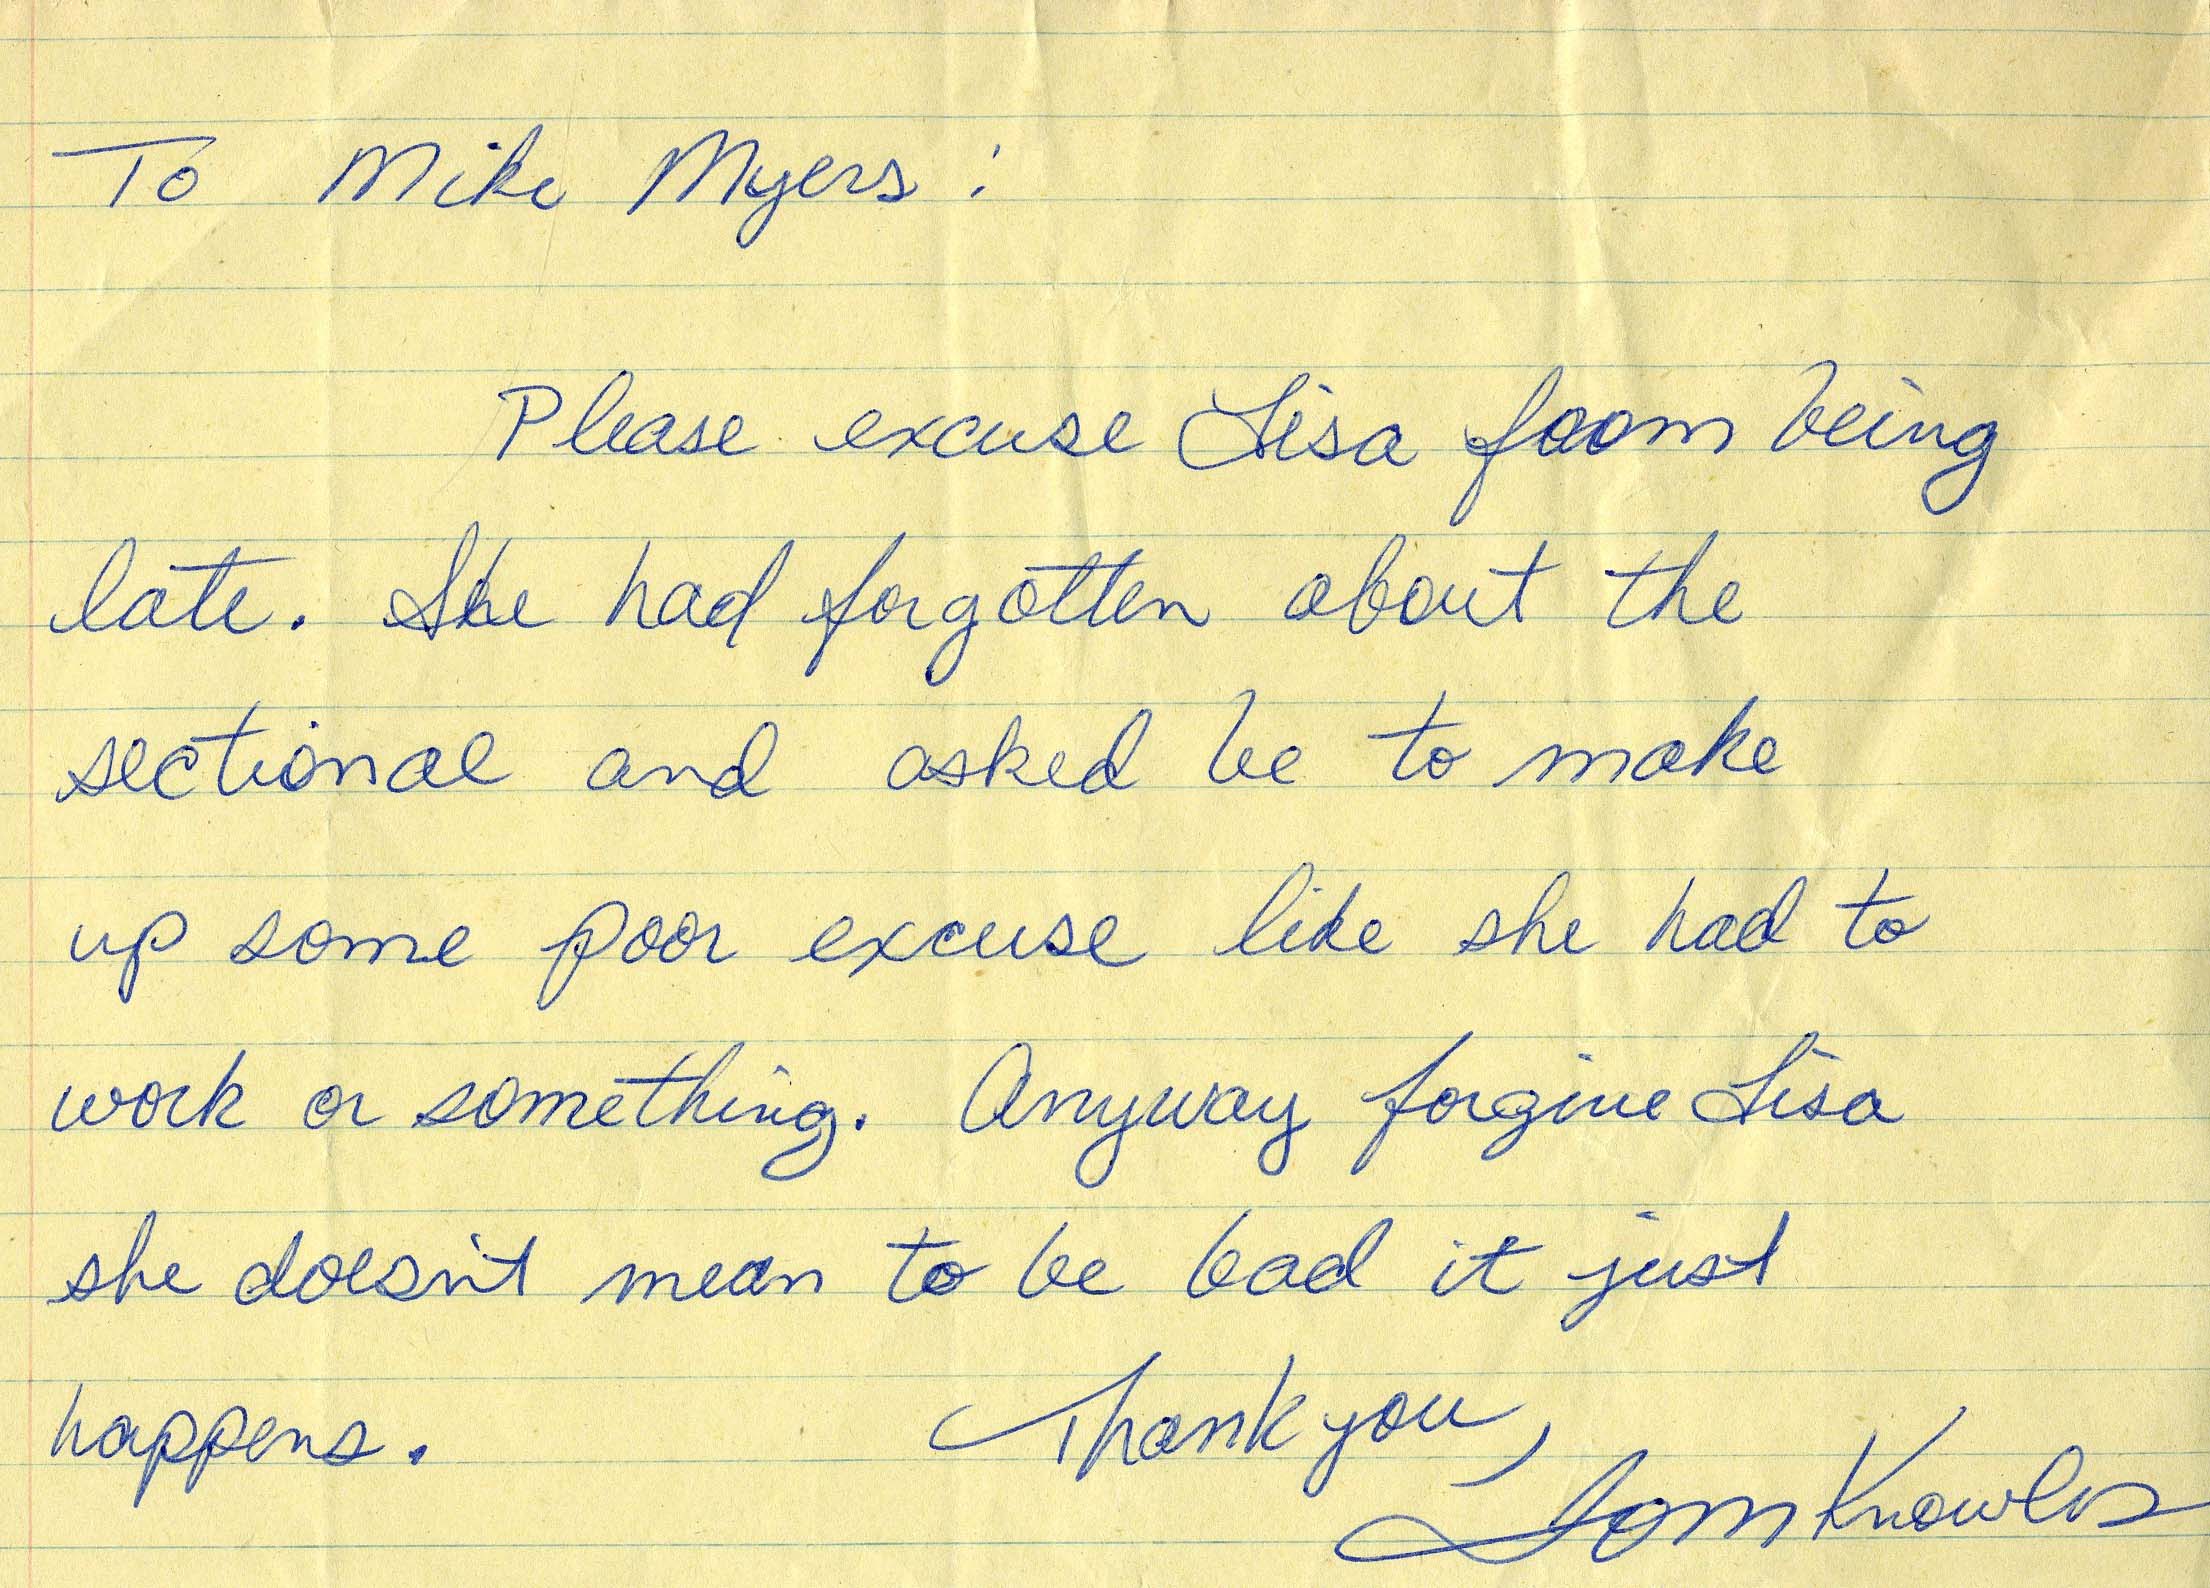 To Mike Myers:
Please excuse Lisa from being
late. She had forgotten about the
sectional and asked be to make
up some poor excuse like she had to
work or something. Anyway forgive Lisa
she doesn't mean to be bad it just
happens.
Thank you,
Tom Knowles